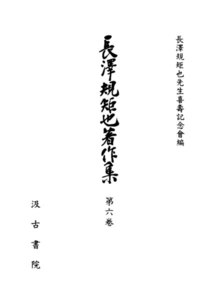 長澤規矩也先生喜壽記念會編
長澤規矩也著作集
第六卷
汲古書院